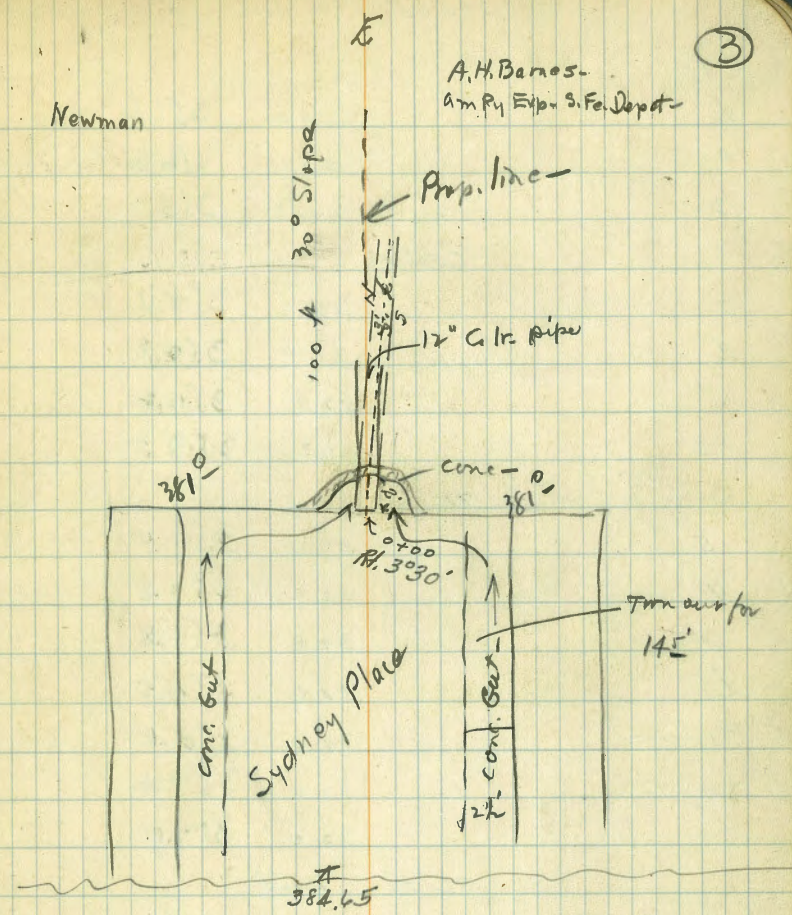 3
A.H. Barnes-
Am Ry Exp. S. Fe. Depot-
Newman
Prop. line-
100 ft 30° Slope
12" C. Ir. pipe
conc-
381.0
381.0
2'
0+00
Rt. 3°30'
Turn out for
145'
Conc. Gut
Sydney Place
Conc. Gut-
2½
384.65